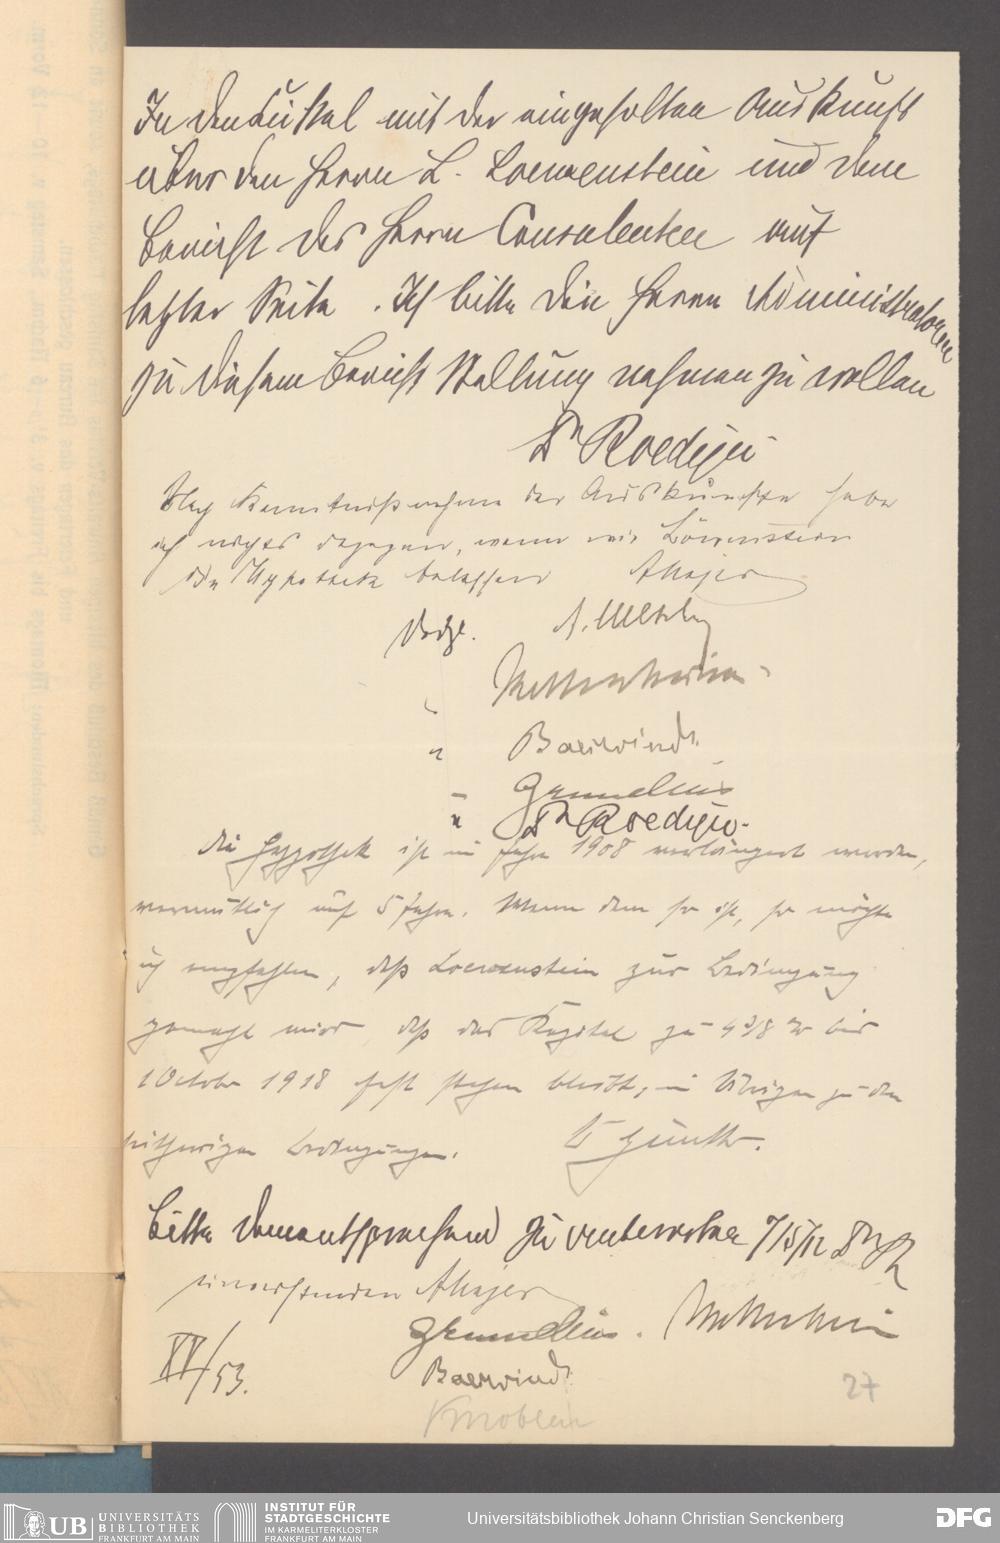 In den Zirkel mit der eingeholten Auskunft
über den Herrn L. Loewenstein und dem
Bericht des Herrn Consulenten auf
letzter Seite. Ich bitte die Herren Administratoren
zu diesem Bericht Stellung nehmen zu wollen
Dr Roediger
Nach Kenntnißnahme der Auskünfte habe
ich nichts dagegen, wenn wir Löwenstein
die Hypothek belassen AMajer
Desgl. A. Metzler
"
" Baerwindt
" Grunelius
" Dr Roediger.
Die Hypothek ist im Jahre 1908 verlängert worden,
vermutlich auf 5 Jahre. Wenn dem so ist, so möchte
ich empfehlen, daß Loewenstein zur Bedingung
gemacht wird, daß das Kapital zu 4 3/8 % bis
1 October 1918 fest stehen bleibt, im Übrigen zu den
seitherigen Bedingungen. Günther.
Bitte dementsprechend zu antworten 7/5/12 Dr R
einverstanden AMajer
Grunelius.
XV/53.
Baerwindt
Knoblauch
27
UB UNIVERSITÄTS
BIBLIOTHEK
FRANKFURT AM MAIN
INSTITUT FÜR
STADTGESCHICHTE
IM KARMELITERKLOSTER
FRANKFURT AM MAIN
Universitätsbibliothek Johann Christian Senckenberg
DFG